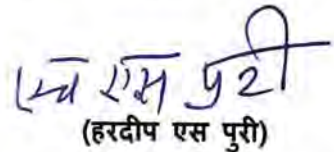 एच एस पुरी
(हरदीप एस पुरी)